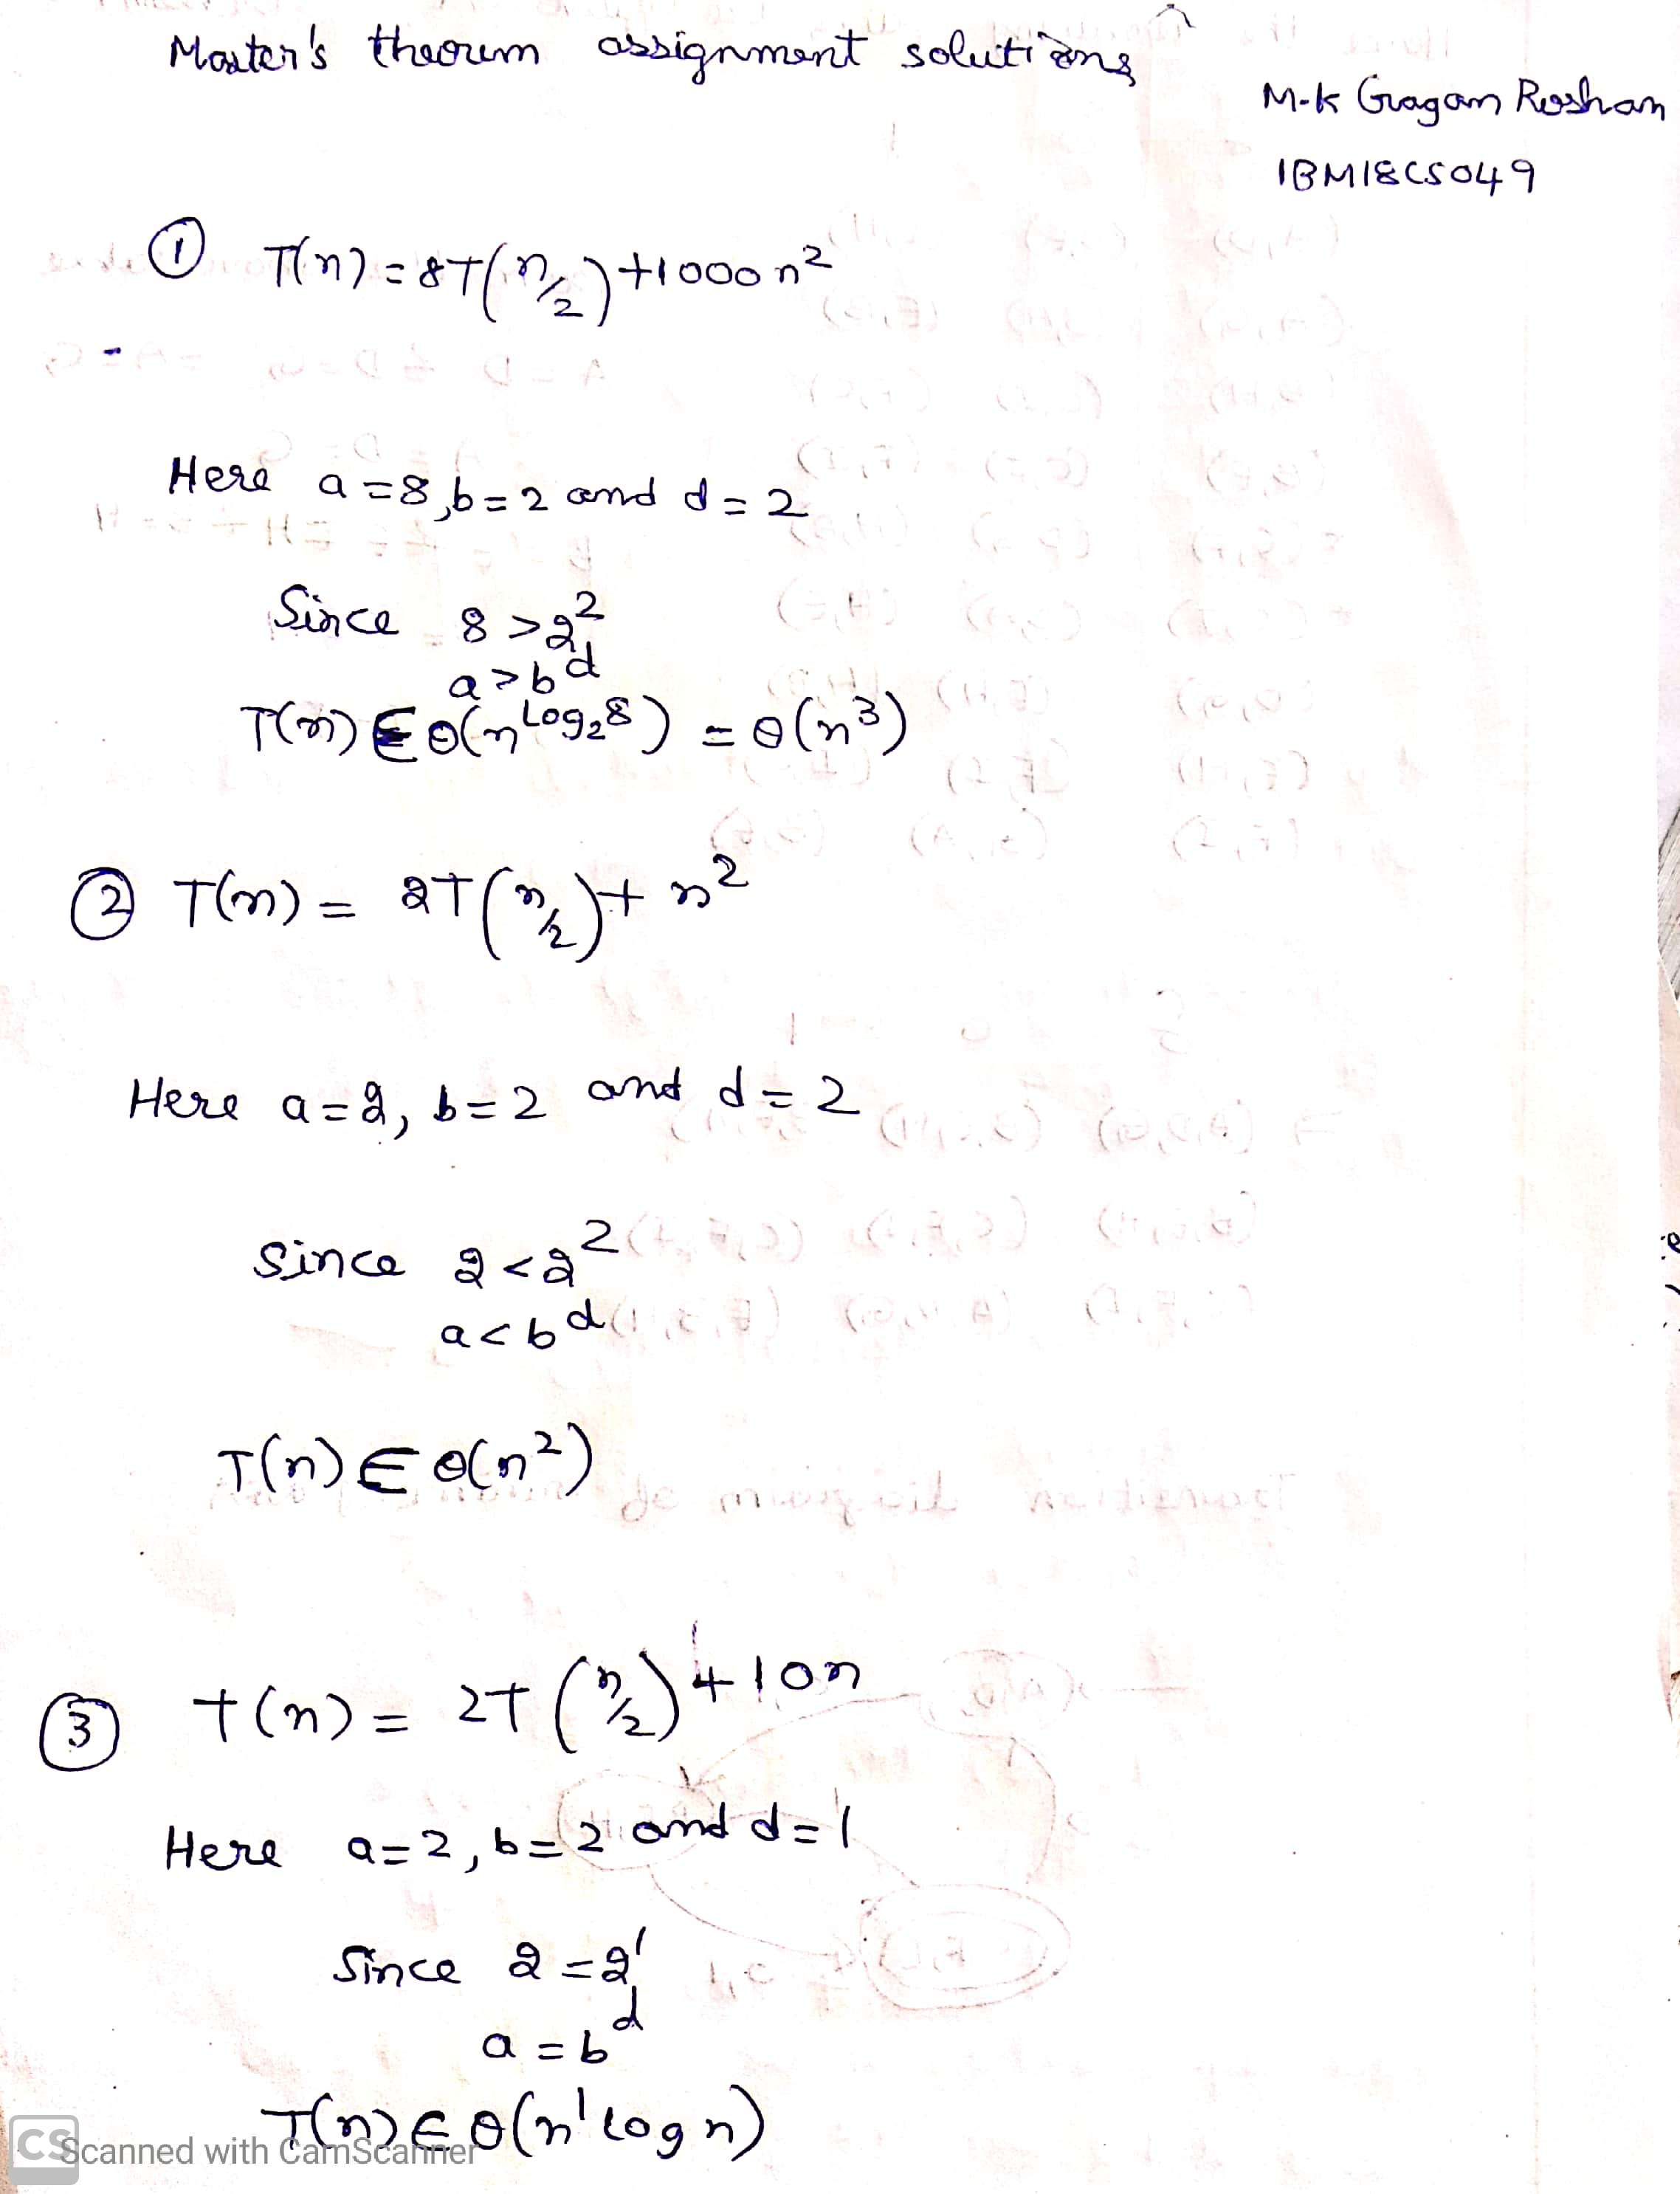 Master's theorum assignment solutions
M.K Gagan Roshan
1BM18CS049
① T(n) = 8T(n/2) + 1000n²
Here a = 8, b = 2 and d = 2
Since 8 > 2²
a > b^d
T(n) ∈ Θ(n^Log₂8) = Θ(n³)
② T(n) = 2T(n/2) + n²
Here a = 2, b = 2 and d = 2
Since 2 < 2²
a < b^d
T(n) ∈ Θ(n²)
③ T(n) = 2T(n/2) + 10n
Here a = 2, b = 2 and d = 1
Since 2 = 2¹
a = b^d
T(n) ∈ Θ(n¹ log n)
CS Scanned with CamScanner